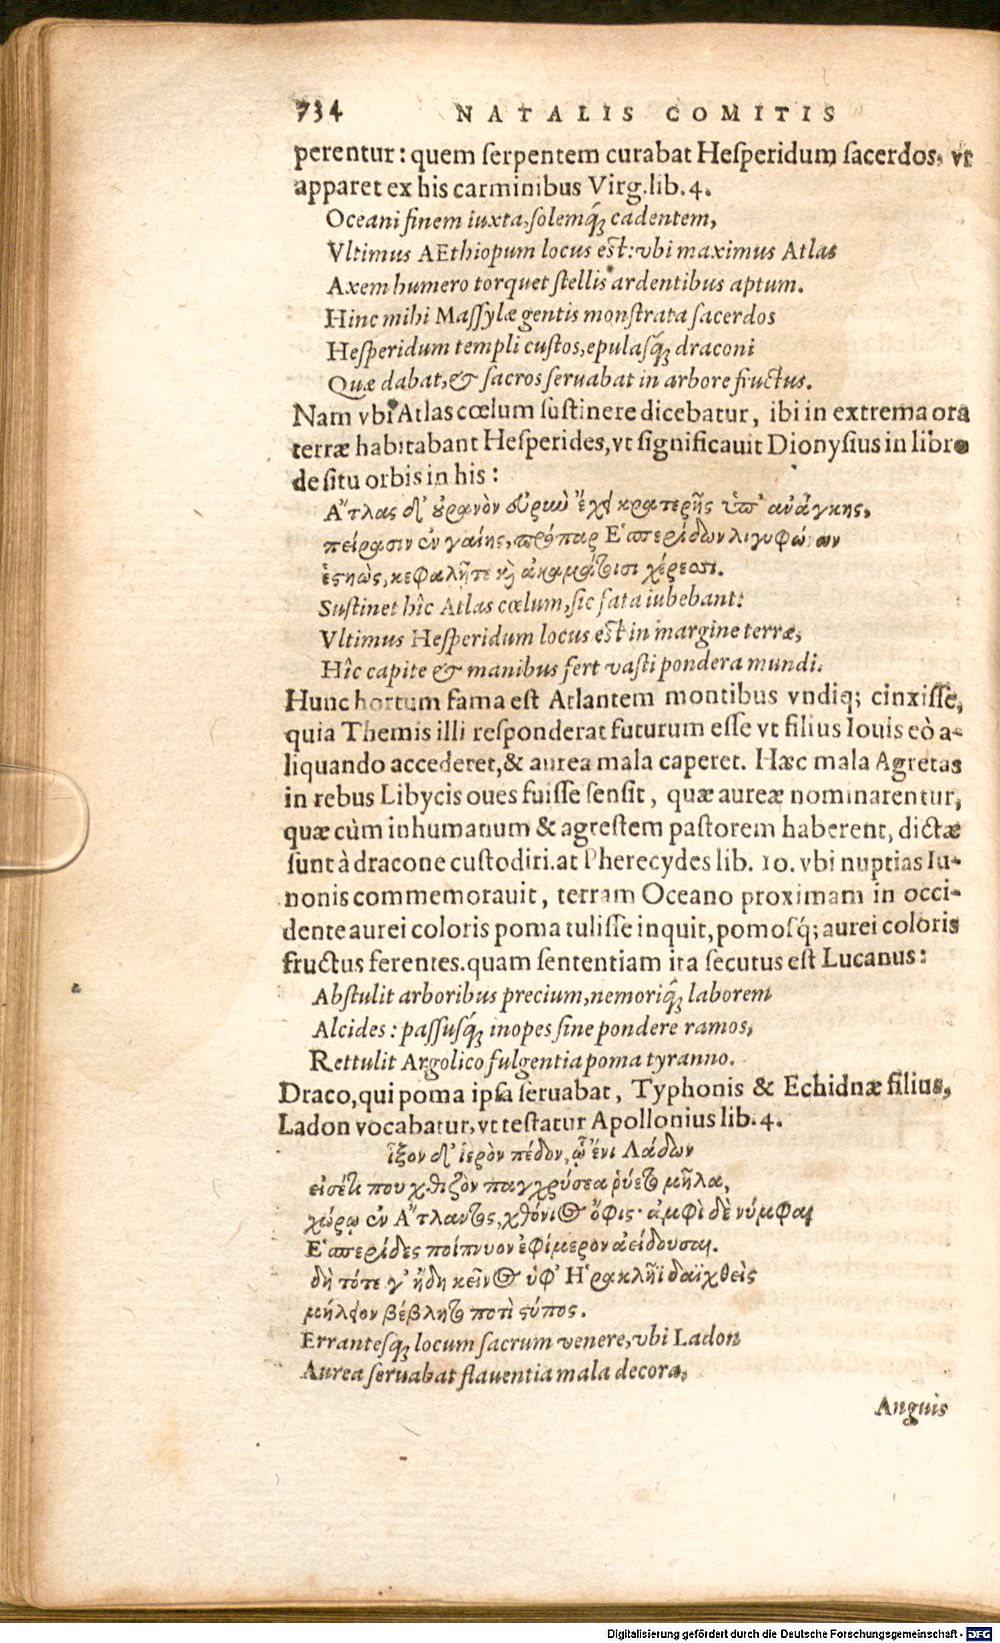 734 NATALIS COMITIS
perentur: quem ſerpentem curabat Heſperidum ſacerdos, vt
apparet ex his carminibus Virg. lib. 4.
Oceani finem iuxta, ſolemq́ꝫ cadentem,
Vltimus AEthiopum locus est: vbi maximus Atlas
Axem humero torquet ſtellis ardentibus aptum.
Hinc mihi Maſſylæ gentis monſtrata ſacerdos
Heſperidum templi cuſtos, epulasq́ꝫ draconi
Quæ dabat, & ſacros ſeruabat in arbore fructus.
Nam vbi Atlas cœlum ſuſtinere dicebatur, ibi in extrema ora
terræ habitabant Heſperides, vt ſignificauit Dionyſius in libro
de ſitu orbis in his:
Ἄτλας δ' οὐρανὸν εὐρὺν ἔχει κρατερῆς ὑπ' ἀνάγκης,
πείρασιν ἐν γαίης, πρόπαρ Ἑσπερίδων λιγυφώνων
ἑστηὼς, κεφαλῇ τε καὶ ἀκαμάτοισι χέρεσσι.
Suſtinet hîc Atlas cœlum, ſic fata iubebant:
Vltimus Heſperidum locus est in margine terræ,
Hîc capite & manibus fert vaſti pondera mundi.
Hunc hortum fama eſt Atlantem montibus vndiq; cinxiſſe,
quia Themis illi reſponderat futurum eſſe vt filius Iouis eò a-
liquando accederet, & aurea mala caperet. Hæc mala Agretas
in rebus Libycis oues fuiſſe ſenſit, quæ aureæ nominarentur,
quæ cùm inhumanum & agreſtem paſtorem haberent, dictæ
ſunt à dracone cuſtodiri. at Pherecydes lib. 10. vbi nuptias Iu-
nonis commemorauit, terram Oceano proximam in occi-
dente aurei coloris poma tuliſſe inquit, pomoſq́; aurei coloris
fructus ferentes. quam ſententiam ita ſecutus eſt Lucanus:
Abſtulit arboribus precium, nemoriq́ꝫ laborem
Alcides: paſſuſq́ꝫ inopes ſine pondere ramos,
Rettulit Argolico fulgentia poma tyranno.
Draco, qui poma ipſa ſeruabat, Typhonis & Echidnæ filius,
Ladon vocabatur, vt teſtatur Apollonius lib. 4.
ἷξον δ' ἱερὸν πέδον, ᾧ ἔνι Λάδων
εἰσέτι που χθιζὸν παγχρύσεα ῥύετο μῆλα,
χώρῳ ἐν Ἄτλαντος, χθόνιος ὄφις· ἀμφὶ δὲ νύμφαι
Ἑσπερίδες ποίπνυον ἐφίμερον ἀείδουσαι.
δὴ τότε γ' ἤδη κεῖνος ὑφ' Ἡρακλῆϊ δαϊχθεὶς
μήλειον βέβλητο ποτὶ στύπος.
Errantesq́ꝫ locum ſacrum venere, vbi Ladon
Aurea ſeruabat flauentia mala decora,
Anguis
Digitalisierung gefördert durch die Deutsche Forschungsgemeinschaft - DFG